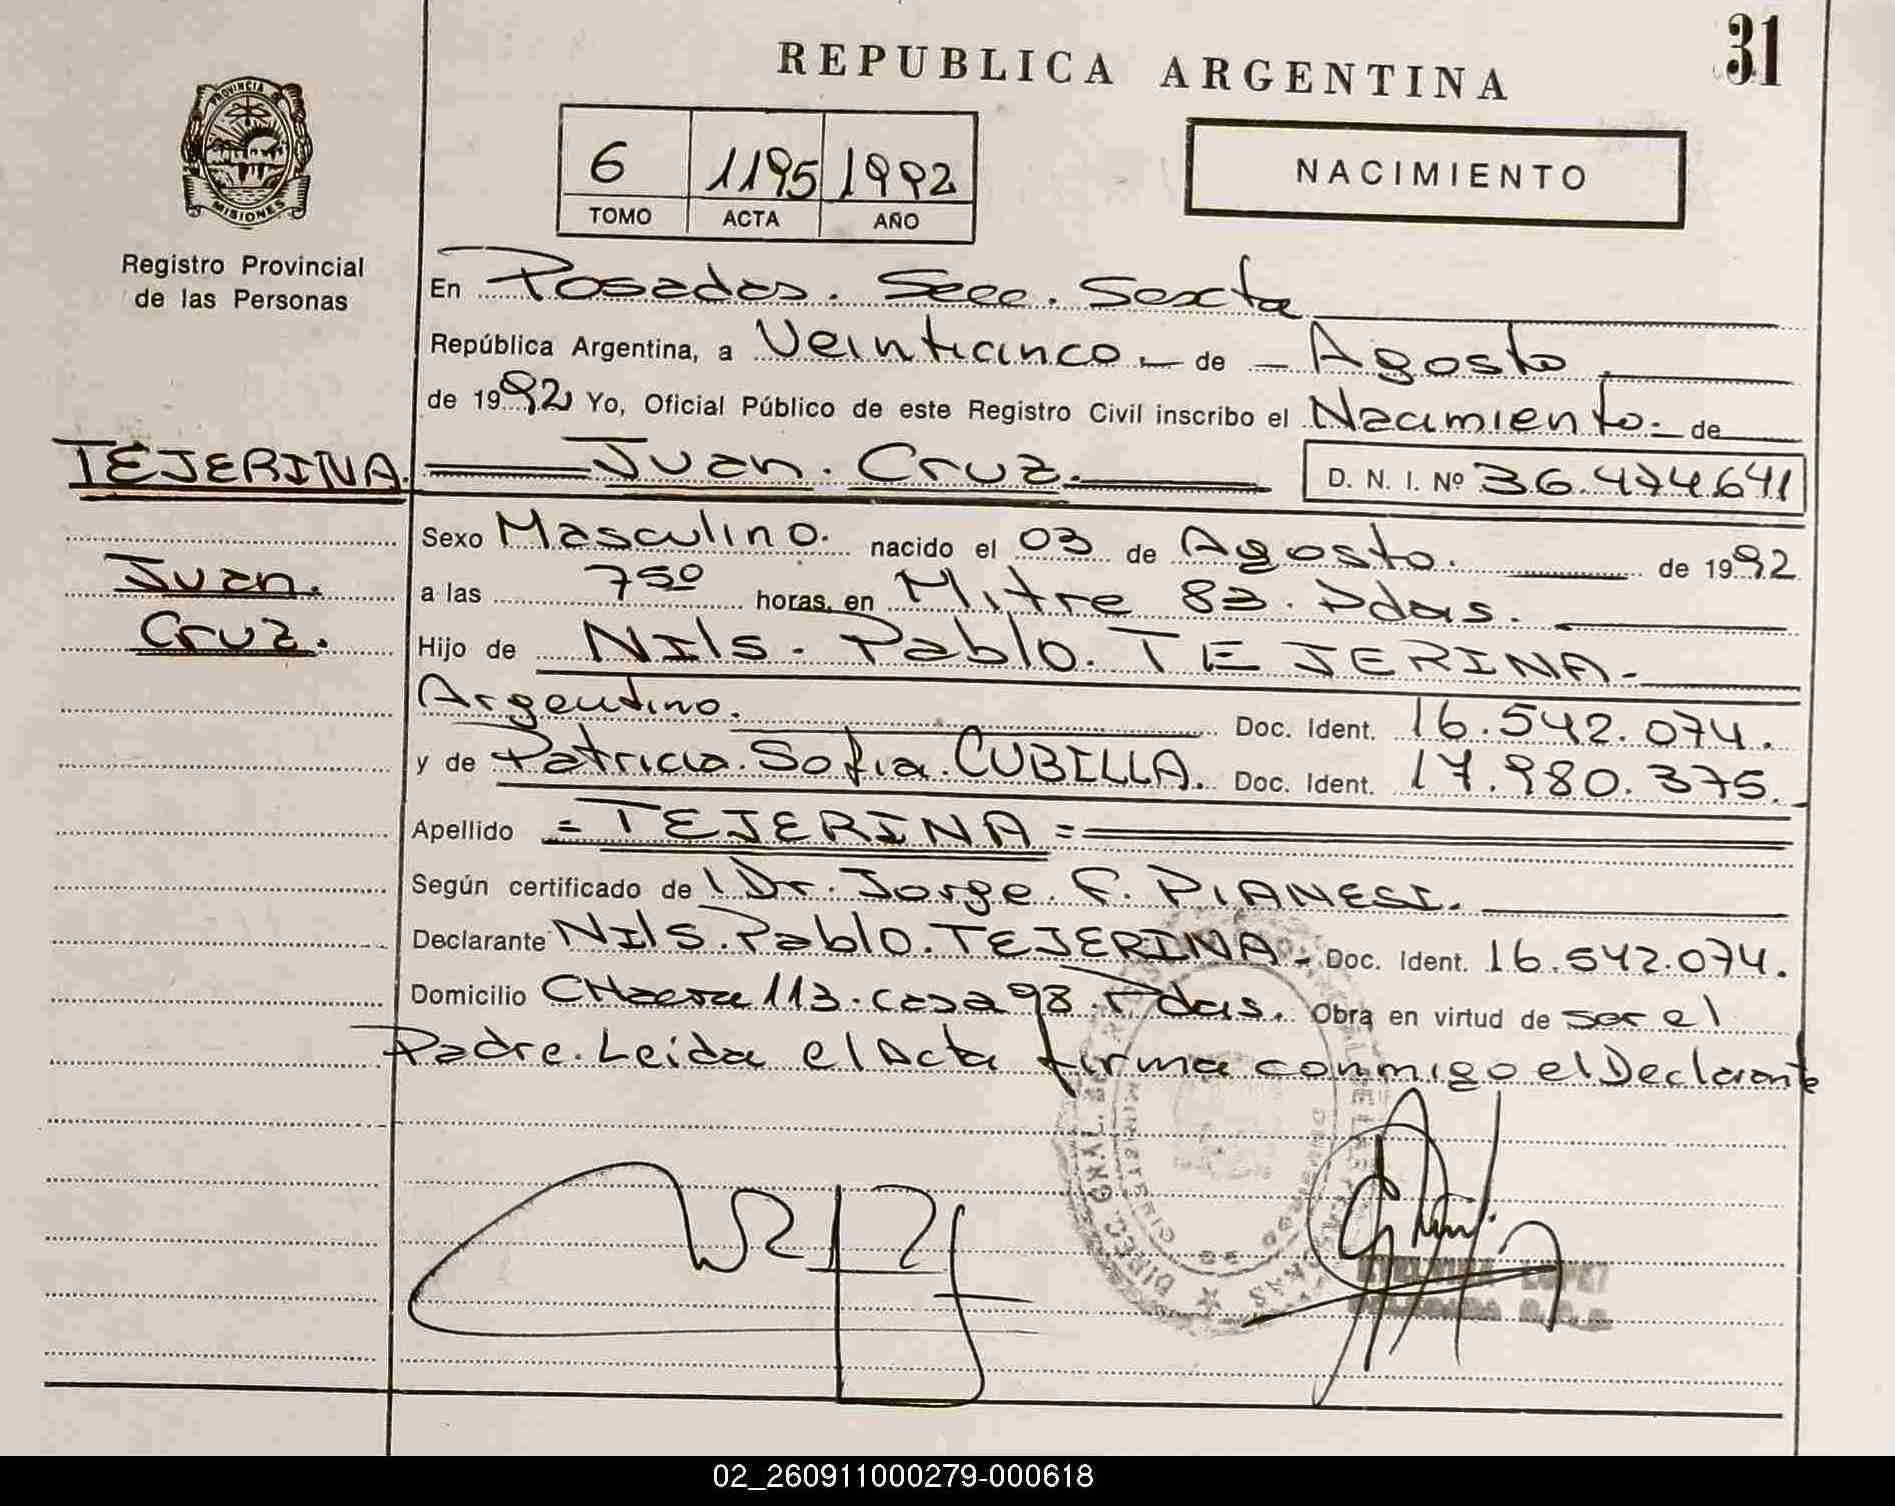 31
REPUBLICA ARGENTINA
NACIMIENTO
6 1195 1992
TOMO ACTA AÑO
PROVINCIA DE
MISIONES
Registro Provincial
de las Personas
En Posadas. Secc. Sexta
República Argentina, a Veinticinco - de - Agosto
de 1992 Yo, Oficial Público de este Registro Civil inscribo el Nacimiento.- de
TEJERINA. Juan. Cruz. D. N. I. Nº 36.474.641
Juan.
Cruz.
Sexo Masculino. nacido el 03 de Agosto. de 1992
a las 750 horas, en Mitre 83. Pdas.
Hijo de Nils. Pablo. TEJERINA.-
Argentino. Doc. Ident. 16.542.074.
y de Patricia. Sofia. CUBILLA. Doc. Ident. 17.980.375.
Apellido = TEJERINA =
Según certificado de Dr. Jorge. F. PIANESI.
Declarante Nils. Pablo. TEJERINA.- Doc. Ident. 16.542.074.
Domicilio 113. casa 98. Pdas. Obra en virtud de ser el
Padre. Leida el Acta firma conmigo el Declarante
LOPEZ
02_260911000279-000618